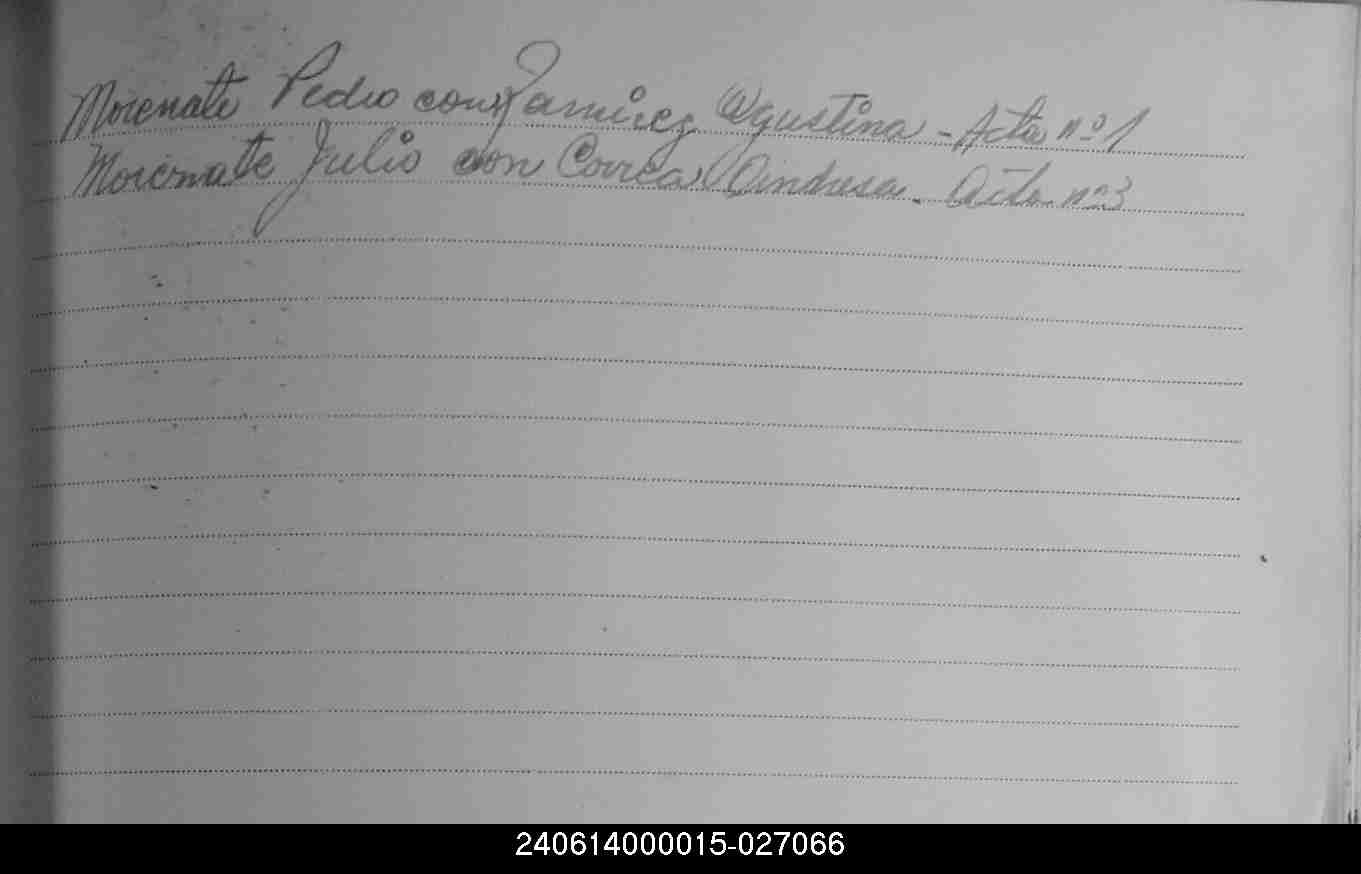 Morenate Pedro con Ramirez Agustina - Acta nº 1
Morenate Julio con Correa Andresa. Acta nº 3
240614000015-027066